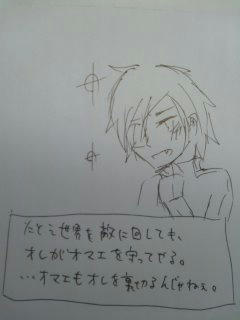 たとえ世界を敵に回しても、
オレがオマエを守ってやる。
…オマエもオレを裏切るんじゃねぇ。